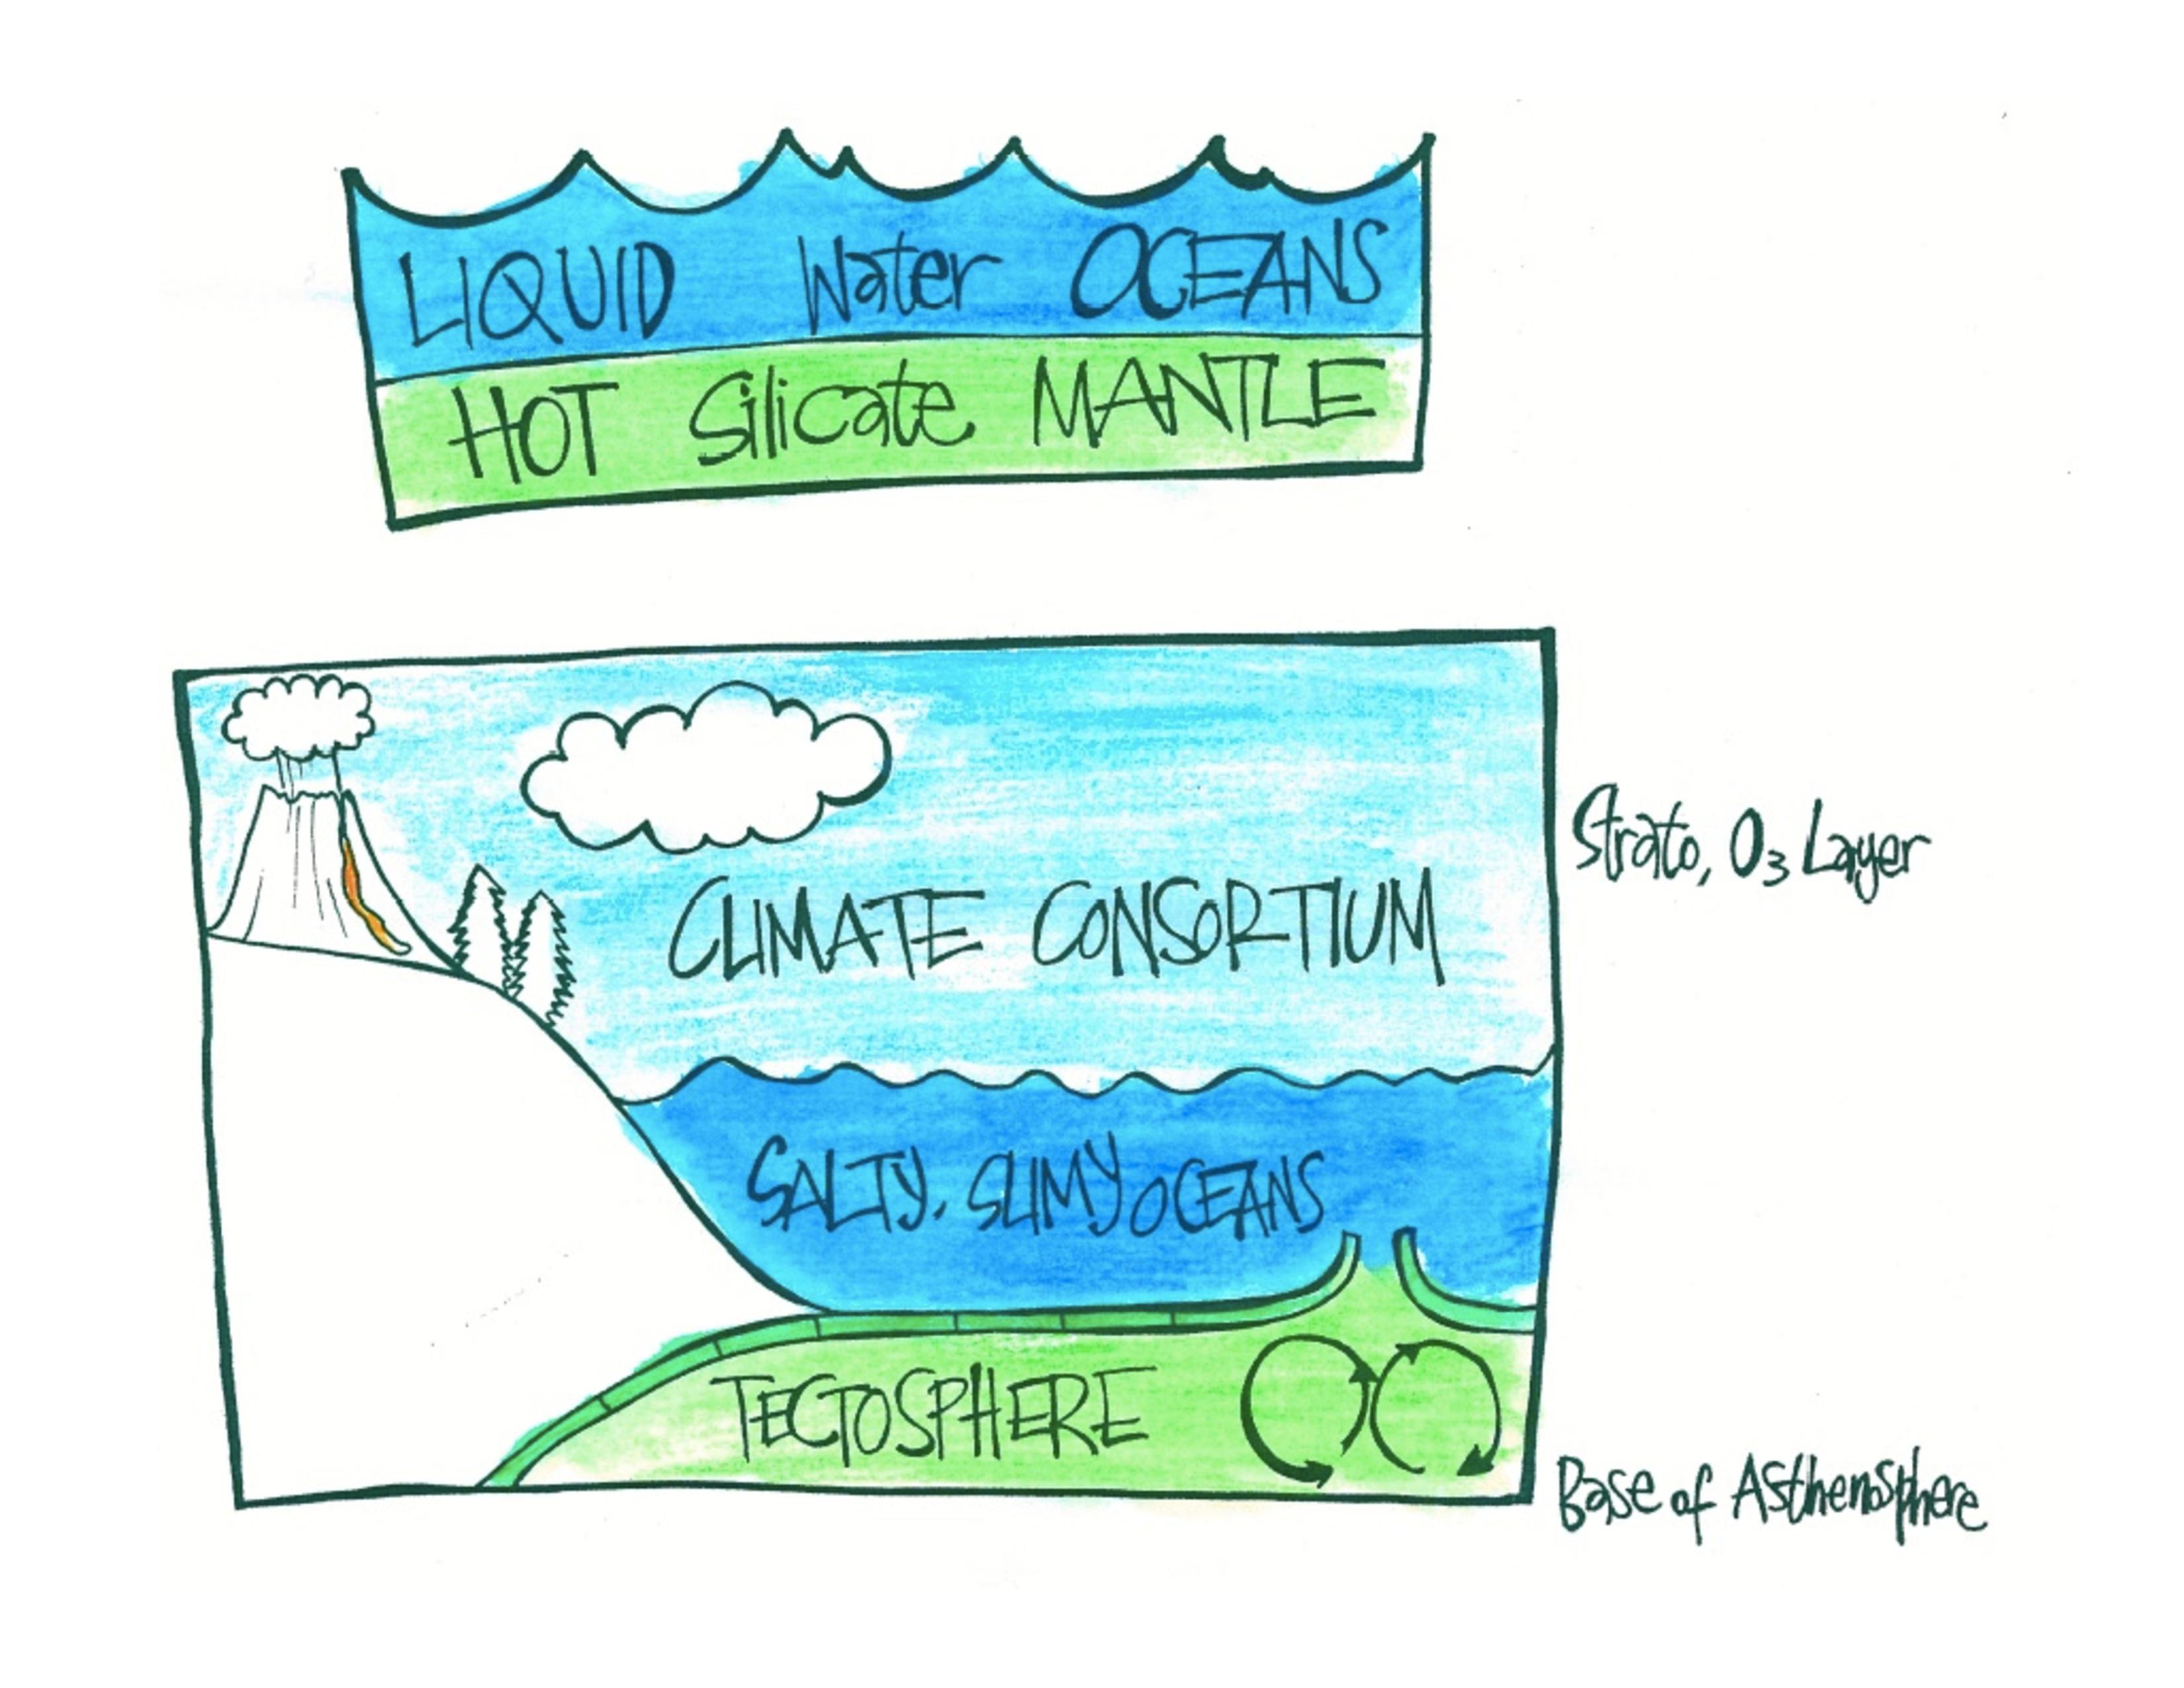 LIQUID Water OCEANS
HOT Silicate MANTLE
Strato, O₃ Layer
CLIMATE CONSORTIUM
SALTY, SLIMY OCEANS
TECTOSPHERE
Base of Asthenosphere